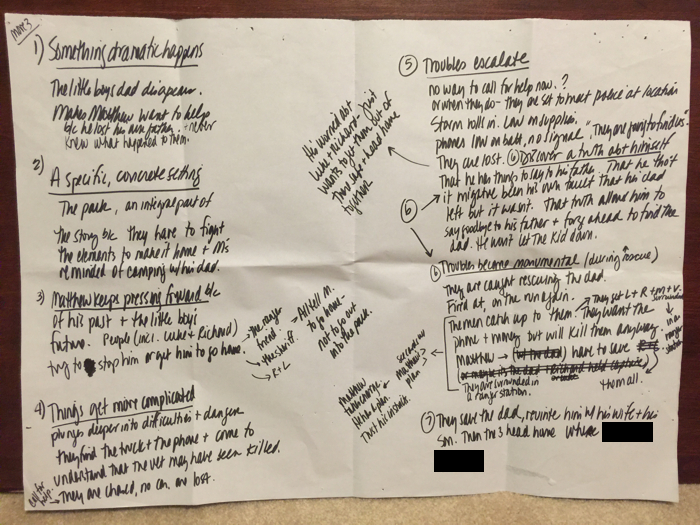 1) Something dramatic happens
The little boys dad disappears.
Makes Matthew want to help
b/c he lost his father. never
knew what happened to them.
2)
A specific, concrete setting
The park, an integral part of
the story b/c they have to fight
the elements to make it home + M's
reminded of camping w/ his dad.
3) Matthew keeps pressing forward b/c
of his past + the little boys
future. People (incl. Luke + Richard)
try to stop him or get him to go home.
→ the ranger
friend
→ the sheriff
→ R + L
→ All tell M.
to go home -
not to go out
into the park.
4) Things get more complicated
plunges deeper into difficulties + danger
they find the truck + the phone + come to
understand that the vet may have been killed.
call for
help. → They are chased, no car. are lost.
He's worried abt
Luke + Richard - just
wants to get them out of
there safe + head home
together
5 Troubles escalate
no way to call for help now. ?
or when they do - they are set to meet police at location
Storm rolls in. Low on supplies.
phones low on batt, no signal "They are going to find us".
They are lost. 6 Discover a truth abt himself
That he has things to say to his father. That he thot
it might've been his own fault that his dad
left but it wasn't. That truth allows him to
say goodbye to his father + forge ahead to find the
dad. He won't let the kid down.
6
6 Troubles become monumental (during rescue)
They are caught rescuing the dad.
Fired at, on the run again.
The men catch up to them. They want the
phone + money but will kill them anyway.
They get L + R + M + V.
surrounded
in a
ranger
station
Matthew → have to save
them all.
They are surrounded in
a ranger station.
Matthew
plan
7 They save the dad, reunite him w/ his wife + his
son. Then the 3 head home where